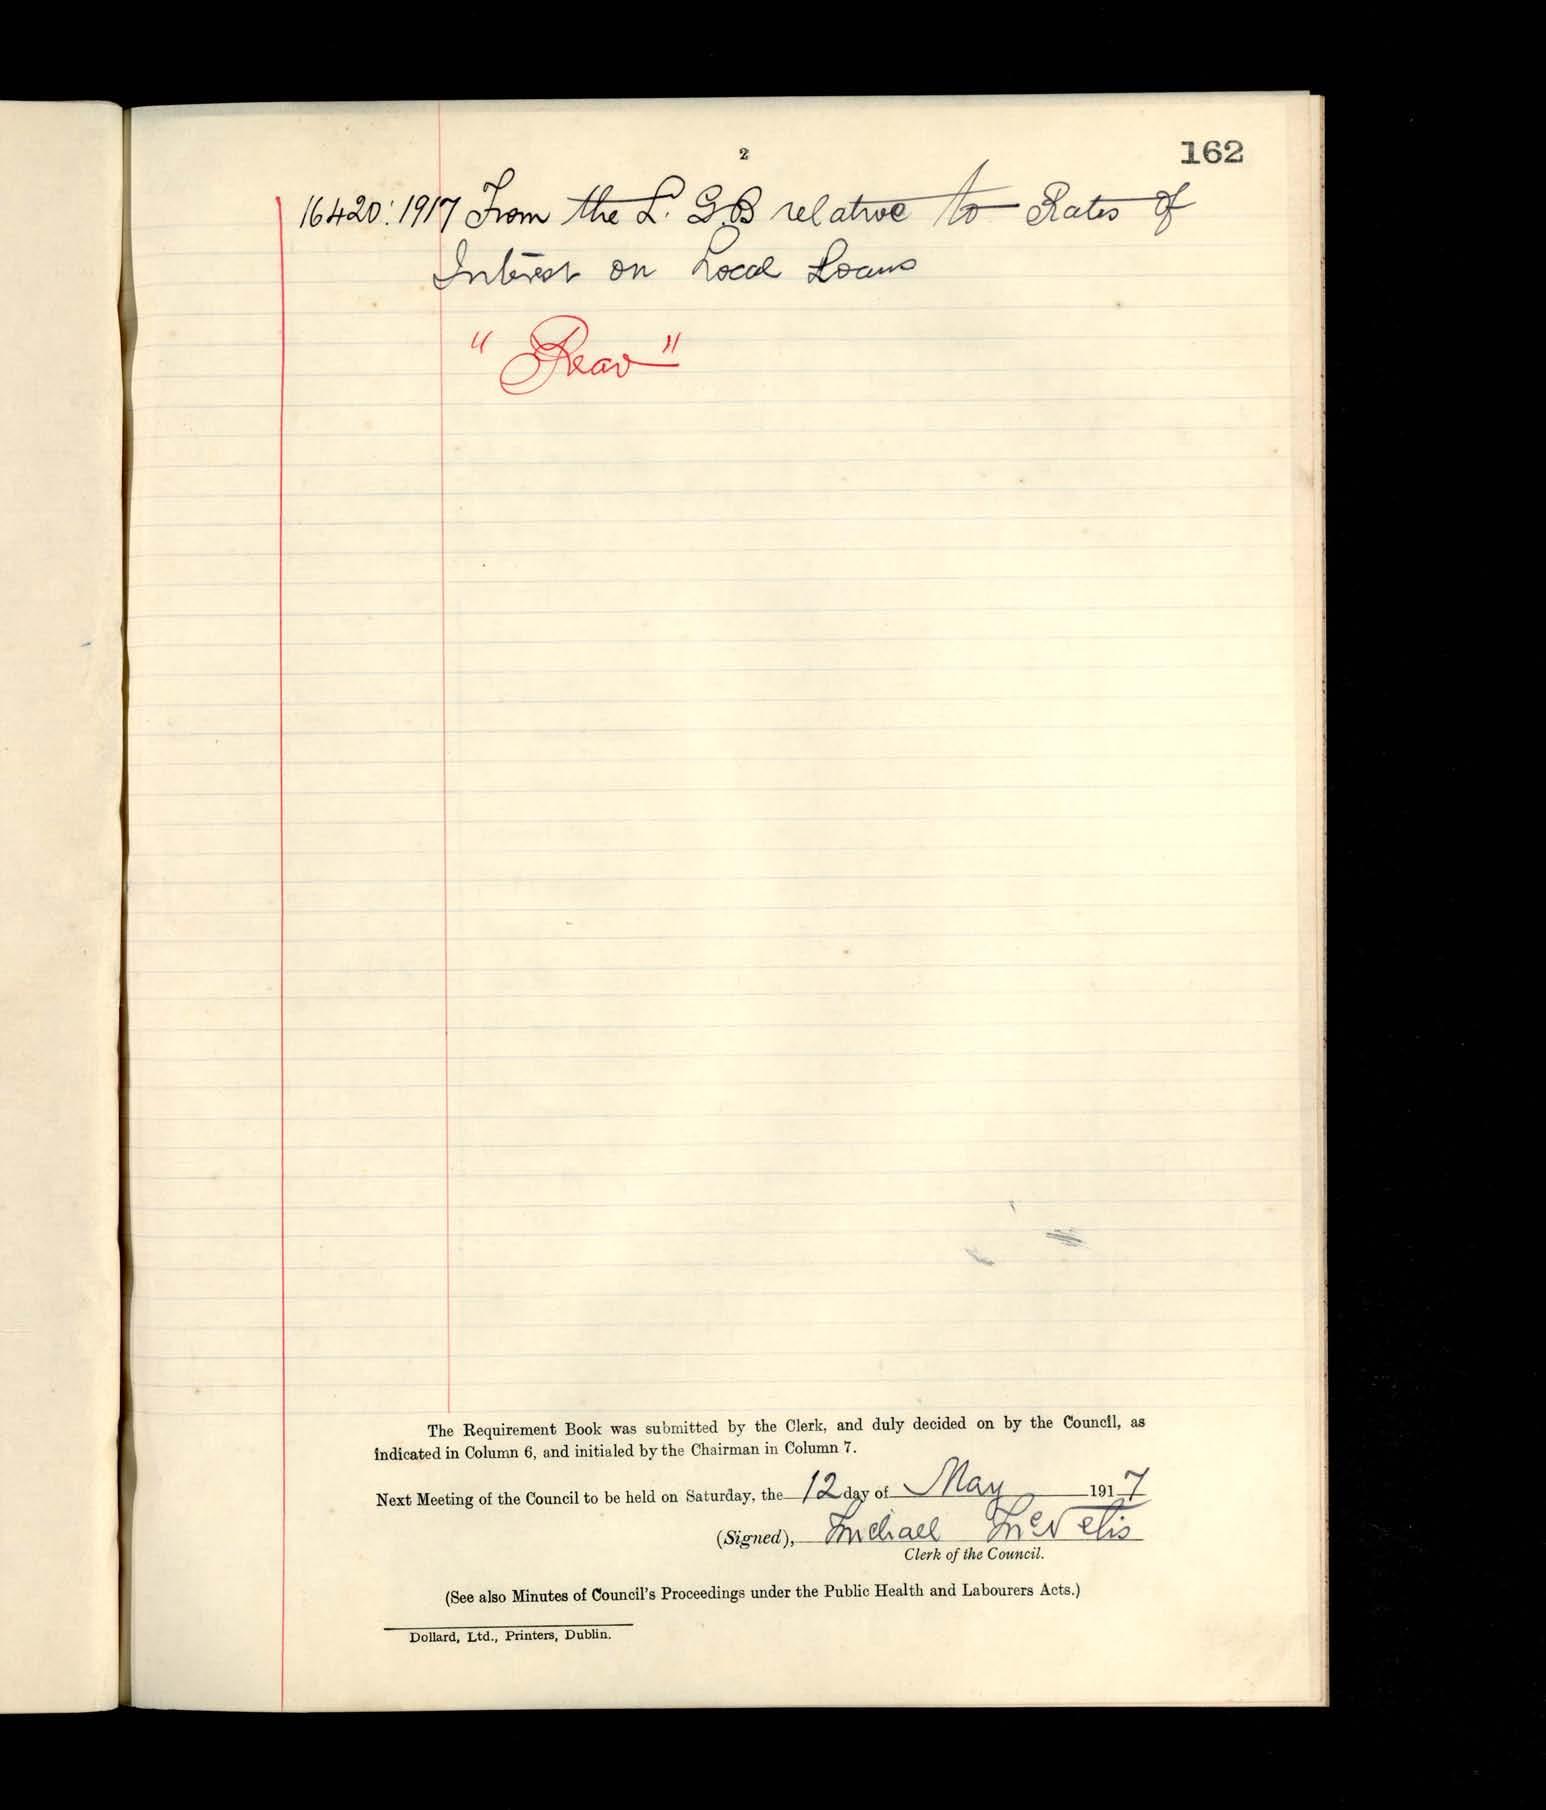 2
162
16420: 1917 From the L. G.B relative to Rates of
Interest on Local Loans
" Read "
The Requirement Book was submitted by the Clerk, and duly decided on by the Council, as
indicated in Column 6, and initialed by the Chairman in Column 7.
Next Meeting of the Council to be held on Saturday, the 12 day of May 1917
(Signed), Michael
Clerk of the Council.
(See also Minutes of Council's Proceedings under the Public Health and Labourers Acts.)
Dollard, Ltd., Printers, Dublin.